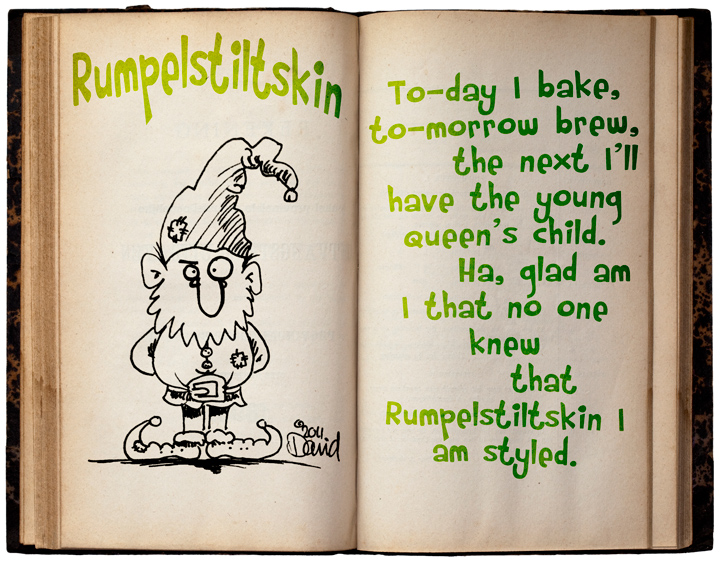 Rumpelstiltskin
©2011
David
To-day I bake,
to-morrow brew,
the next I'll
have the young
queen's child.
Ha, glad am
I that no one
knew
that
Rumpelstiltskin I
am styled.